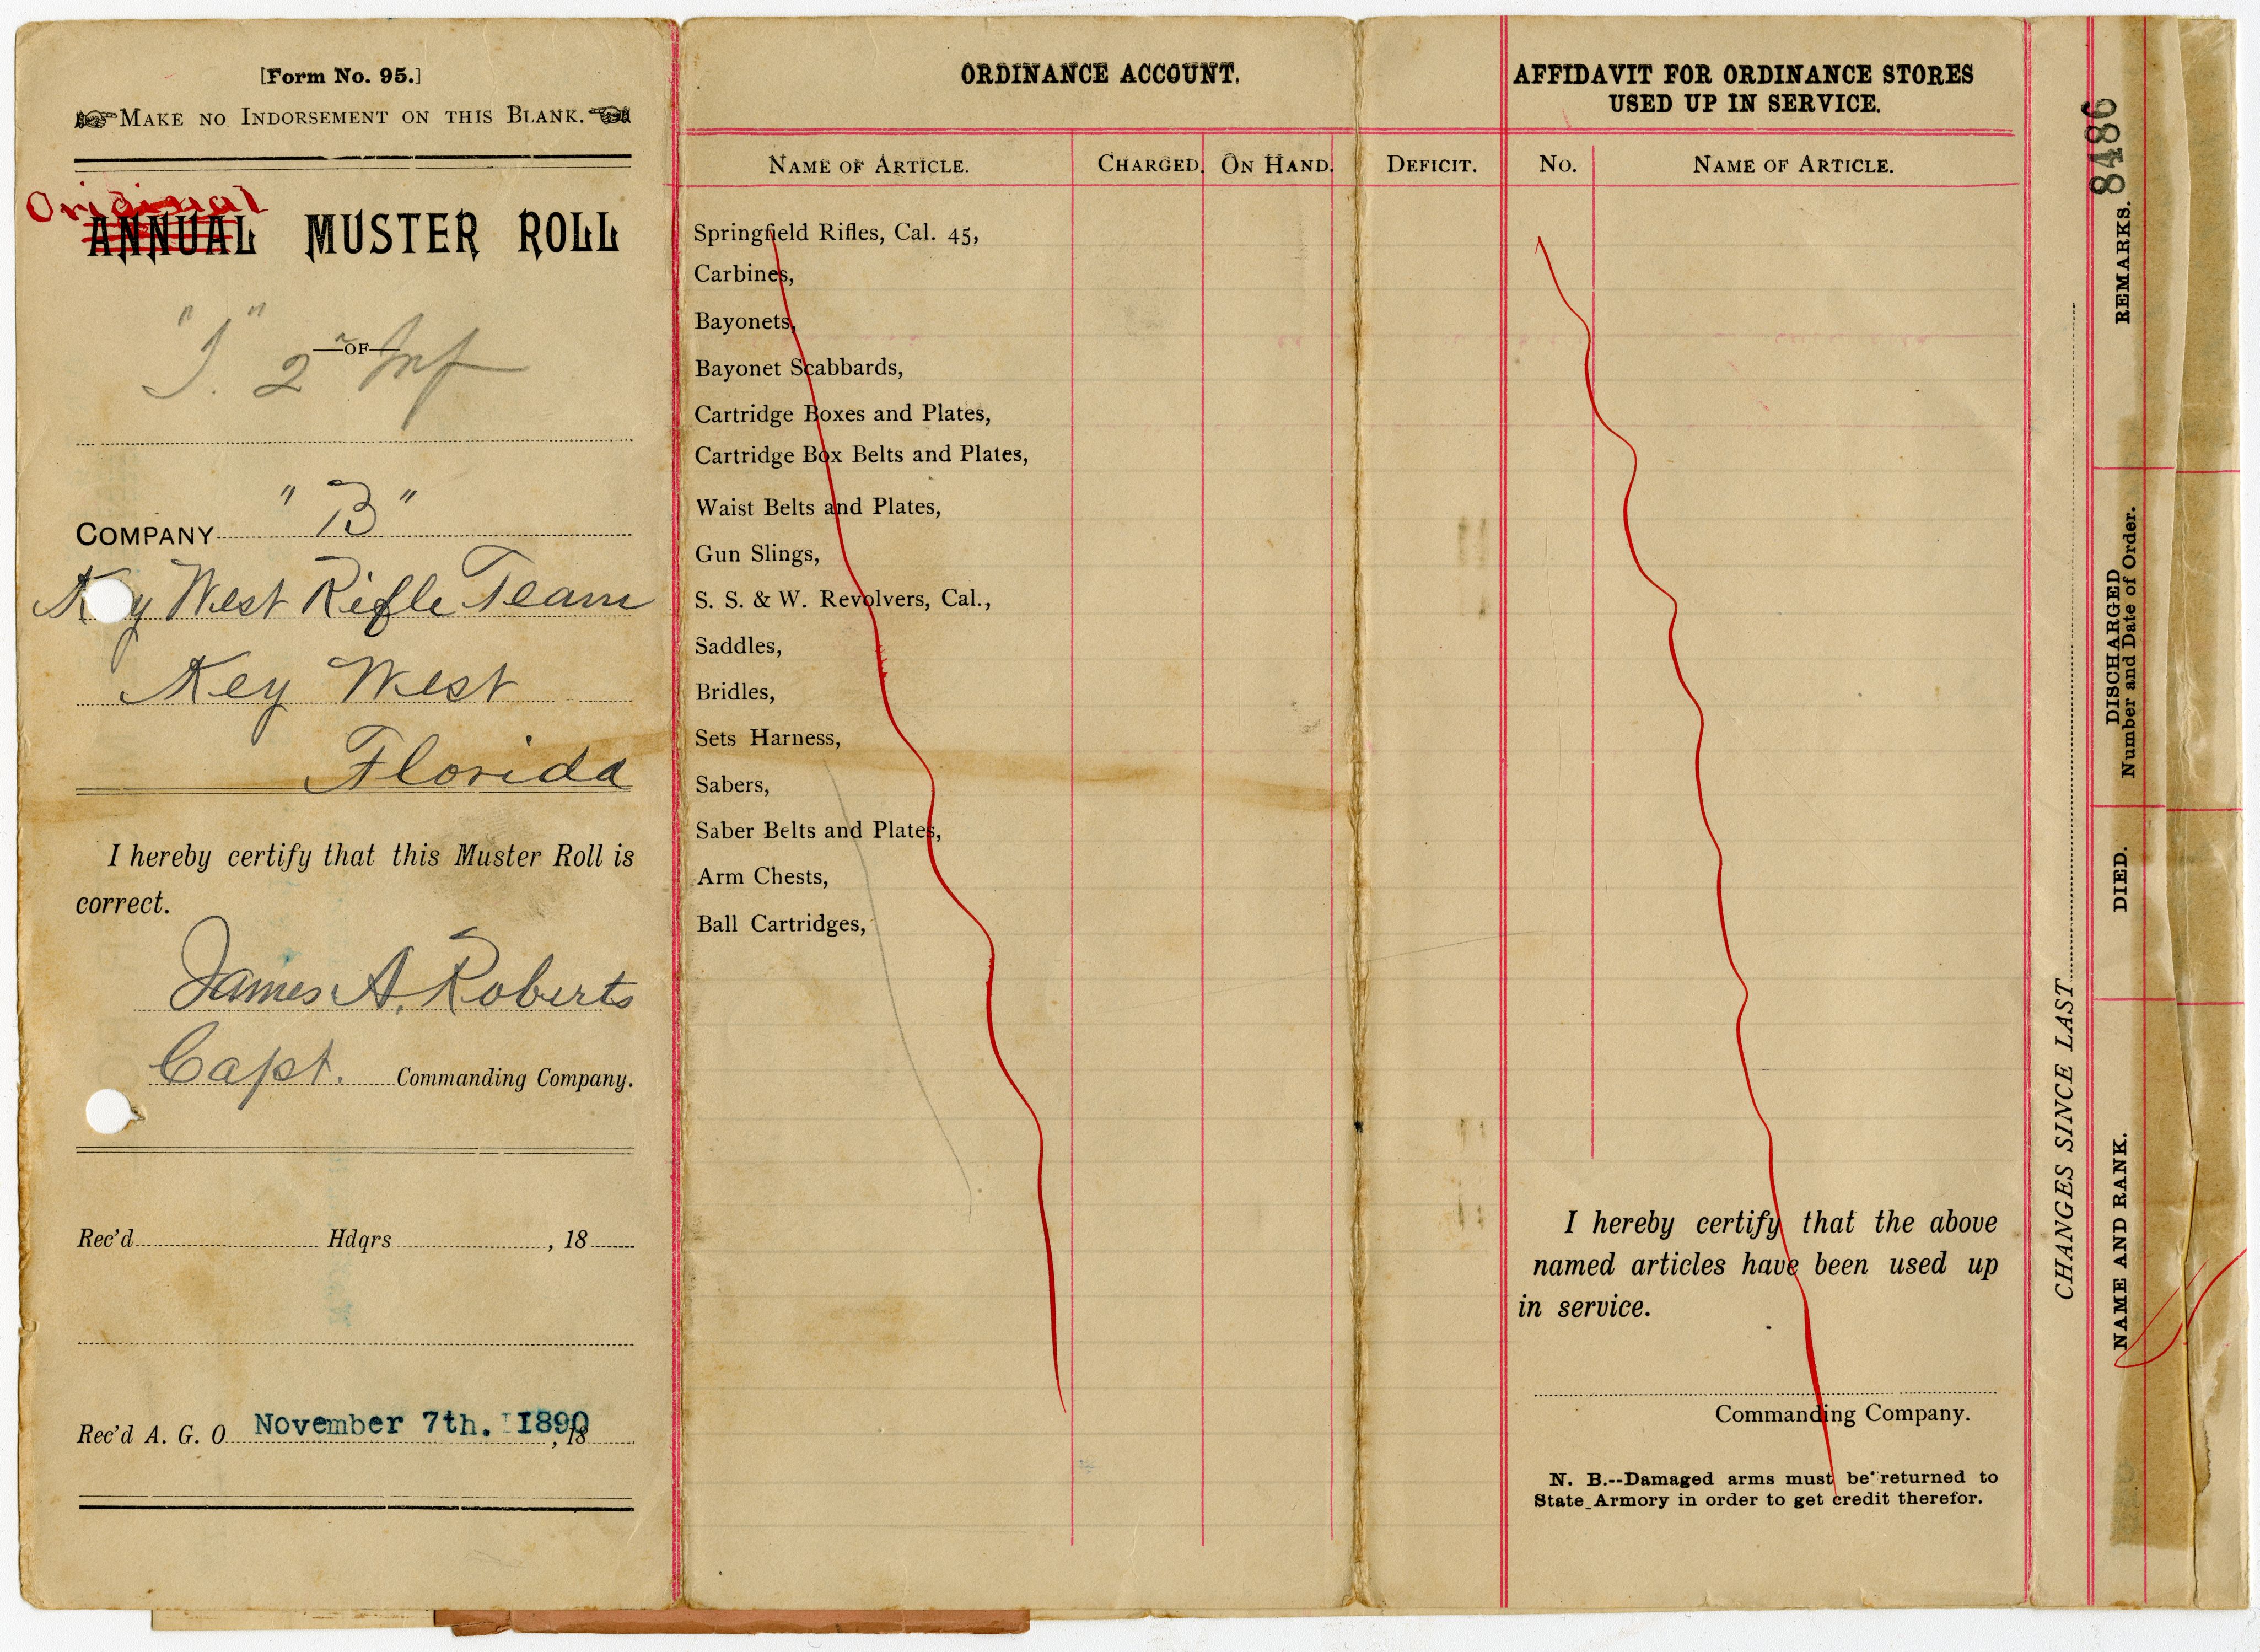 [Form No. 95.]
MAKE NO INDORSEMENT ON THIS BLANK.
Original
ANNUAL MUSTER ROLL
—OF—
2nd Inf
COMPANY "B"
Key West Rifle Team
Key West
Florida
I hereby certify that this Muster Roll is
correct.
James A. Roberts
Capt. Commanding Company.
Rec'd Hdqrs , 18
Rec'd A. G. O. November 7th. 1890 , 18
ORDINANCE ACCOUNT.
NAME OF ARTICLE. CHARGED. ON HAND. DEFICIT.
Springfield Rifles, Cal. 45,
Carbines,
Bayonets,
Bayonet Scabbards,
Cartridge Boxes and Plates,
Cartridge Box Belts and Plates,
Waist Belts and Plates,
Gun Slings,
S. S. & W. Revolvers, Cal.,
Saddles,
Bridles,
Sets Harness,
Sabers,
Saber Belts and Plates,
Arm Chests,
Ball Cartridges,
AFFIDAVIT FOR ORDINANCE STORES
USED UP IN SERVICE.
NO. NAME OF ARTICLE.
I hereby certify that the above
named articles have been used up
in service.
Commanding Company.
N. B.--Damaged arms must be returned to
State Armory in order to get credit therefor.
CHANGES SINCE LAST
NAME AND RANK.
DIED.
DISCHARGED
Number and Date of Order.
REMARKS.
8486